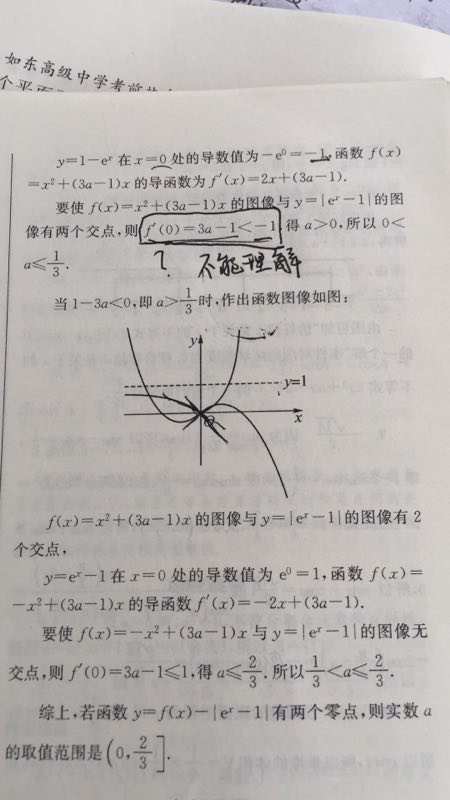 如东高级中学考前热
个平面
y=1-eˣ在x=0处的导数值为-e⁰=-1,函数f(x)
=x²+(3a-1)x的导函数为f′(x)=2x+(3a-1).
要使f(x)=x²+(3a-1)x的图像与y=|eˣ-1|的图
像有两个交点,则f′(0)=3a-1<-1,得a>0,所以0<
a≤1/3.
? 不能理解
当1-3a<0,即a>1/3时,作出函数图像如图:
y
y=1
O
x
f(x)=x²+(3a-1)x的图像与y=|eˣ-1|的图像有2
个交点,
y=eˣ-1在x=0处的导数值为e⁰=1,函数f(x)=
-x²+(3a-1)x的导函数f′(x)=-2x+(3a-1).
要使f(x)=-x²+(3a-1)x与y=|eˣ-1|的图像无
交点,则f′(0)=3a-1≤1,得a≤2/3.所以1/3<a≤2/3.
综上,若函数y=f(x)-|eˣ-1|有两个零点,则实数a
的取值范围是(0,2/3].